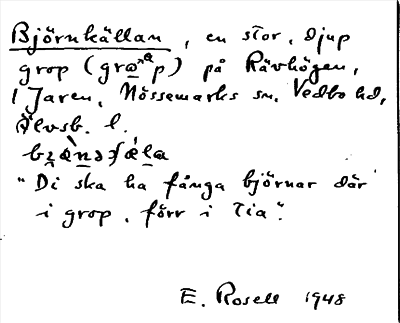 Björnkällan, en stor, djup
grop (grop) på Rävhögen,
1 Jaren, Nössemarks sn. Vedbo hd,
Älvsb. l.
"Di ska ha fånga björnar där
i grop, förr i tia".
E. Rosell 1948